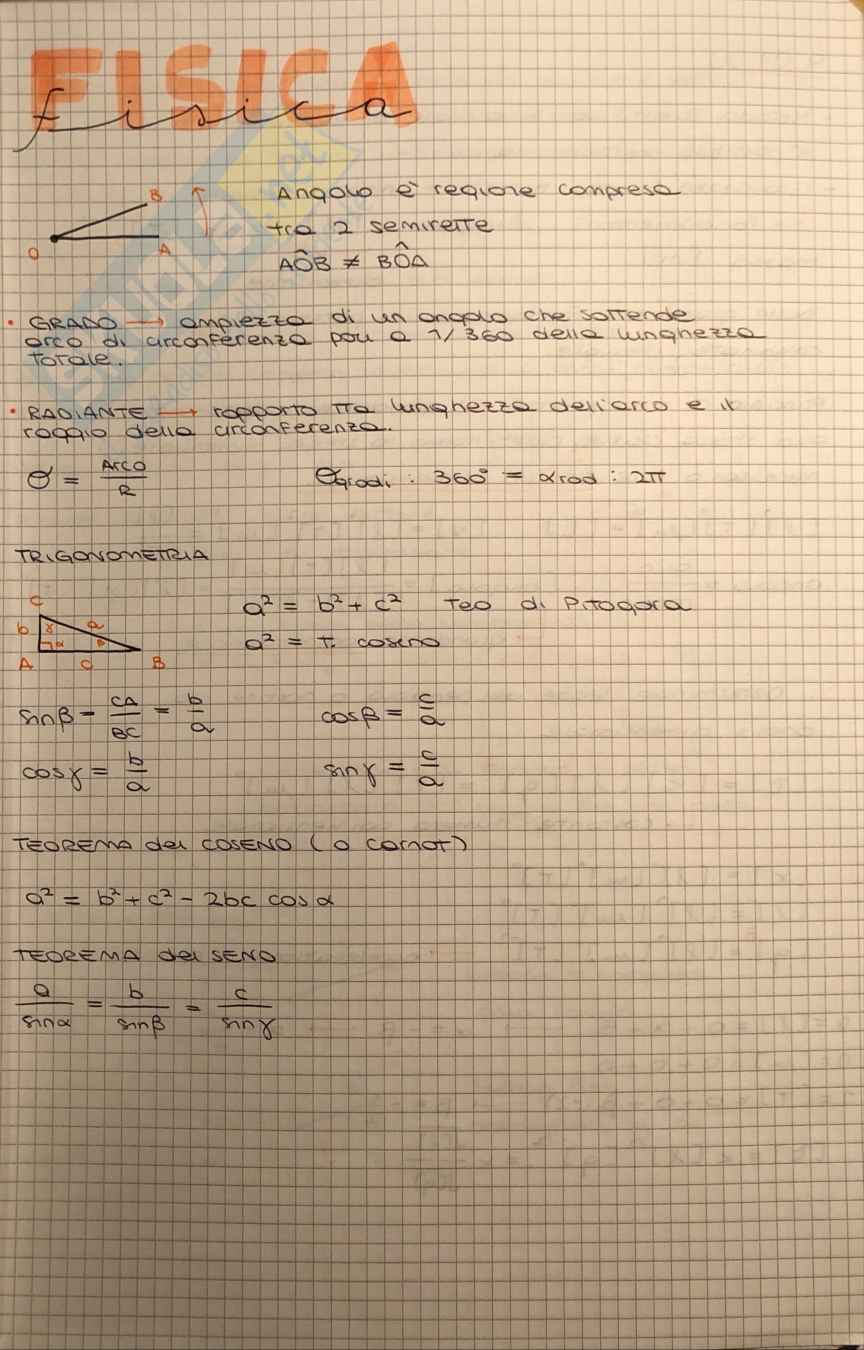 FISICA
Fisica
B
O
A
Angolo è regione compresa
tra 2 semirette
AÔB ≠ BÔA
• GRADO → ampiezza di un angolo che sottende
arco di circonferenza pari a 1/360 della lunghezza
totale.
• RADIANTE → rapporto tra lunghezza dell'arco e il
raggio della circonferenza.
θ = Arco/R
θgradi : 360° = αrad : 2π
TRIGONOMETRIA
C
b γ a
α β
A c B
a² = b² + c² Teo di Pitagora
a² = T. coseno
sinβ = CA/BC = b/a
cosβ = c/a
cosγ = b/a
sinγ = c/a
TEOREMA del COSENO (o Carnot)
a² = b² + c² - 2bc cosα
TEOREMA del SENO
a/sinα = b/sinβ = c/sinγ